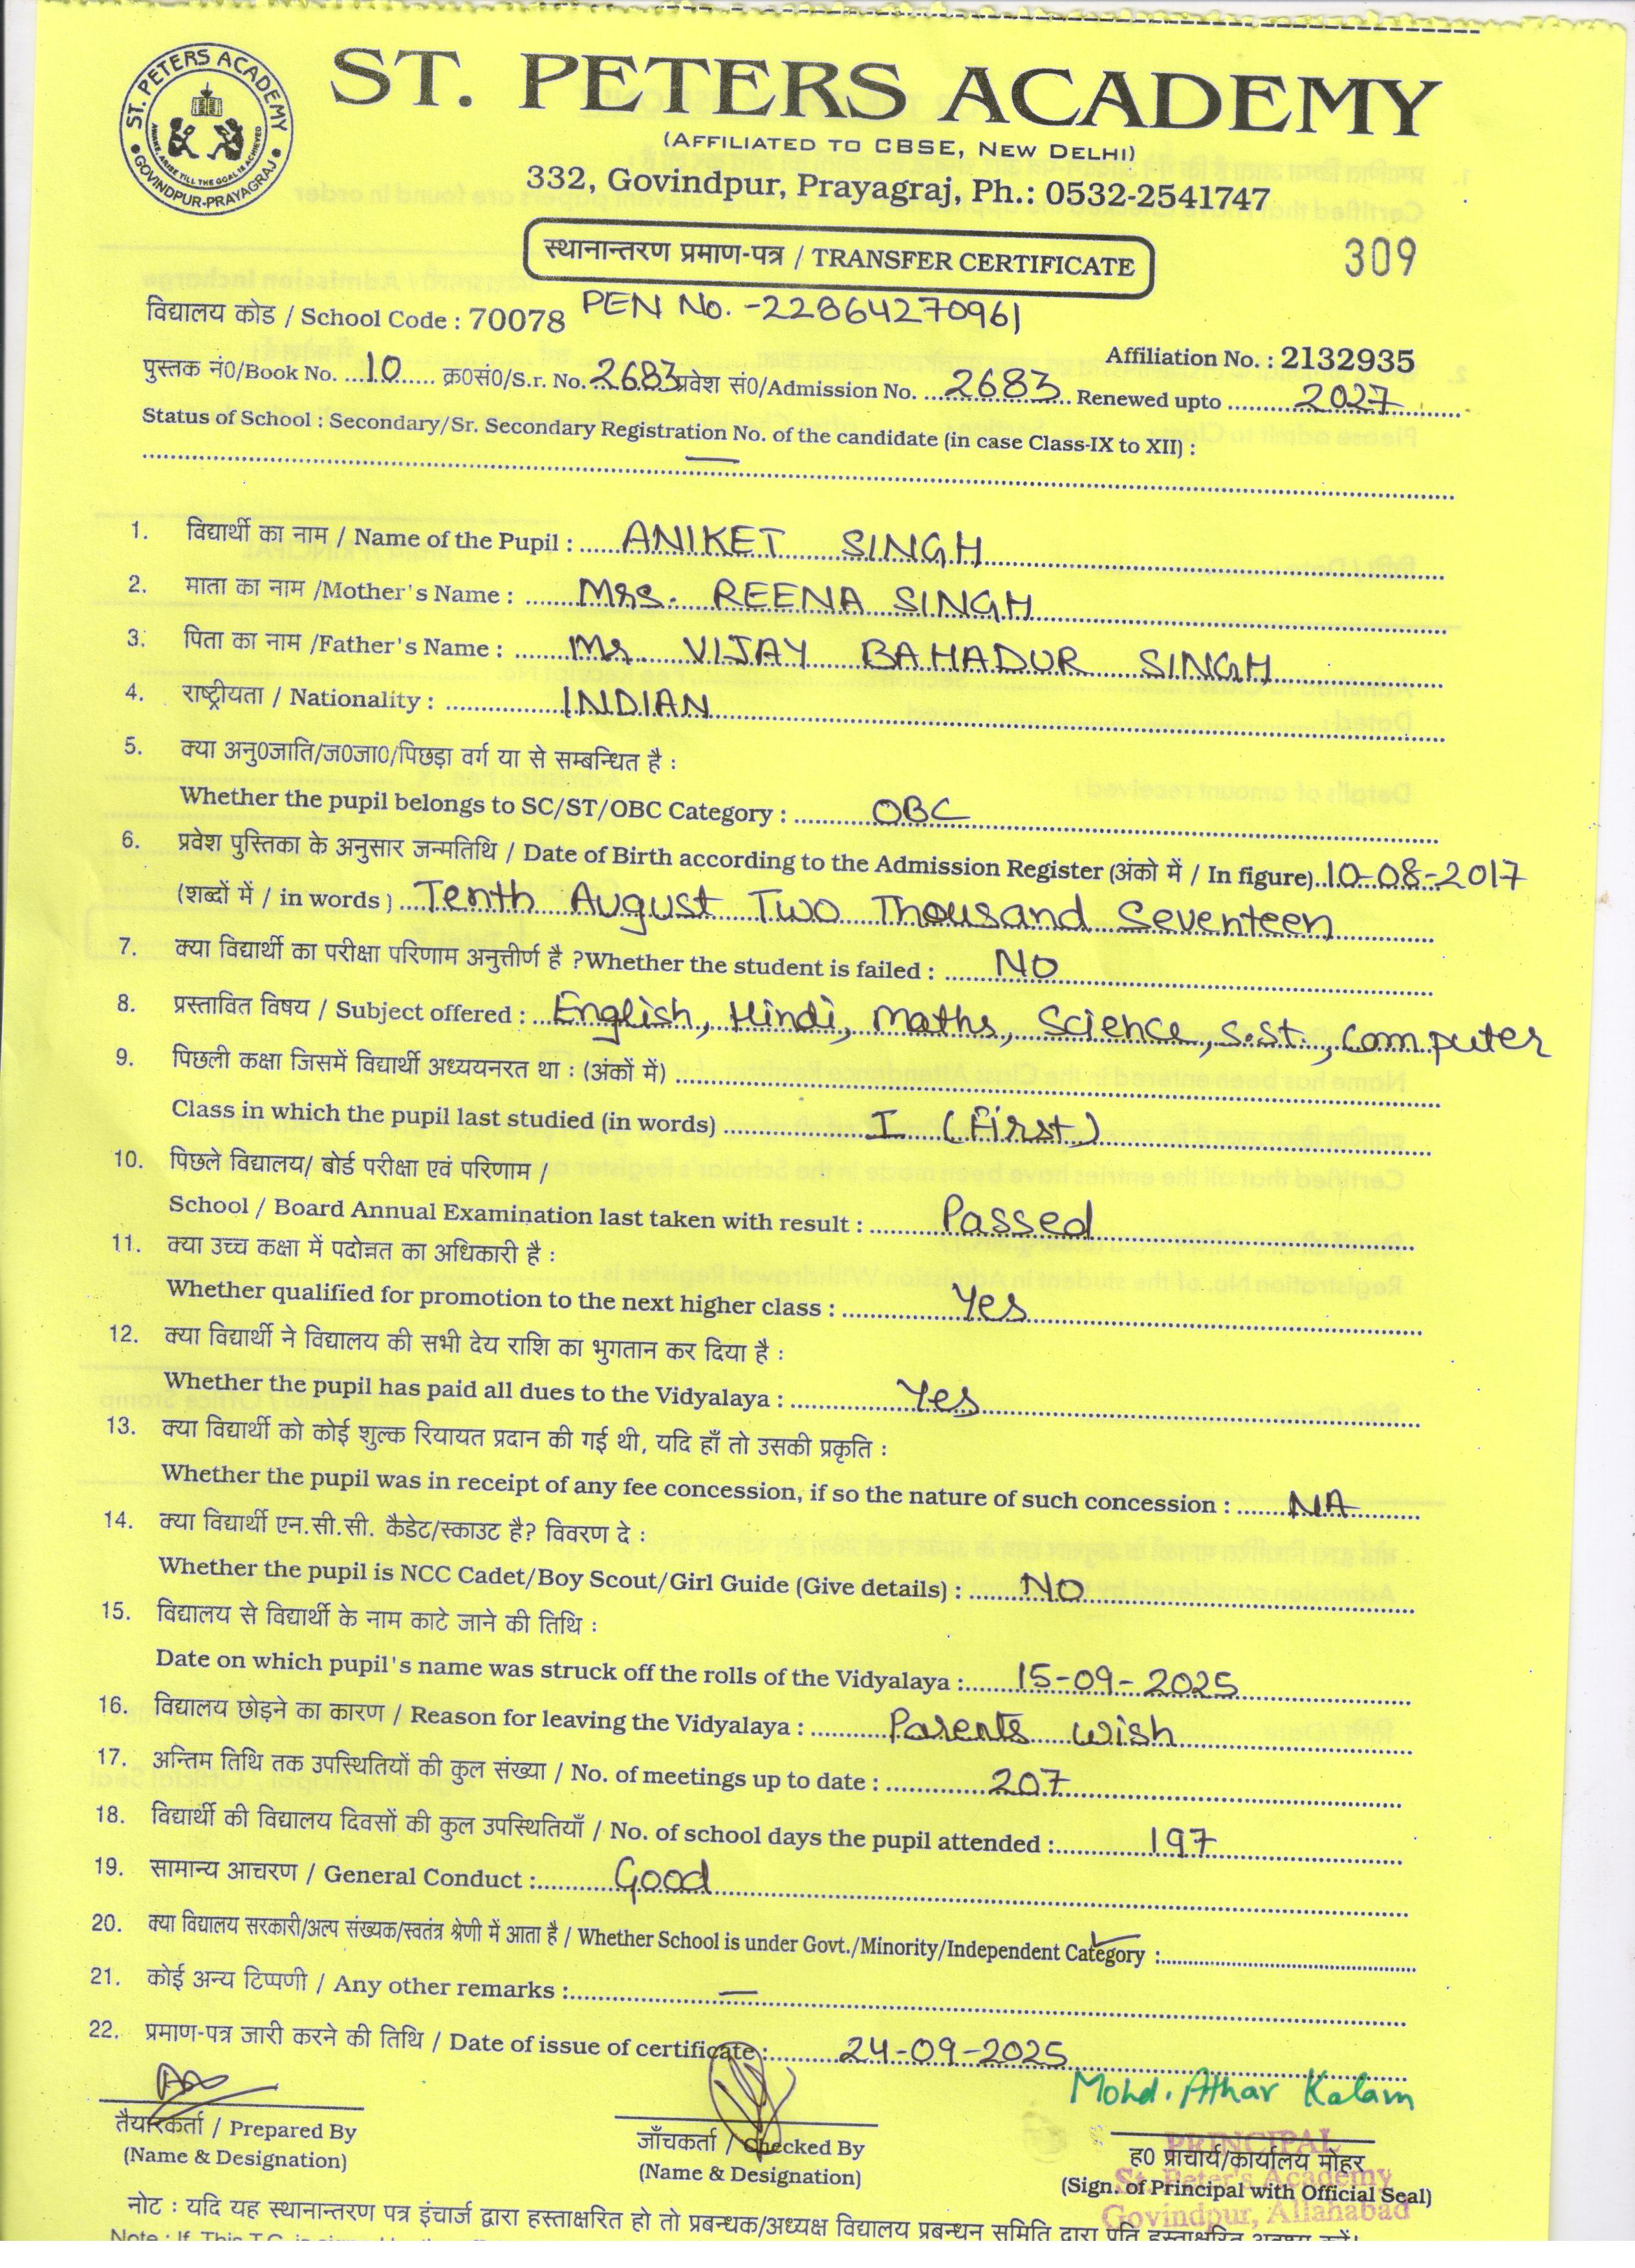 ST. PETERS ACADEMY
GOVINDPUR-PRAYAGRAJ
AWAKE, ARISE TILL THE GOAL IS ACHIEVED
ST. PETERS ACADEMY
(AFFILIATED TO CBSE, NEW DELHI)
332, Govindpur, Prayagraj, Ph.: 0532-2541747
स्थानान्तरण प्रमाण-पत्र / TRANSFER CERTIFICATE
309
विद्यालय कोड / School Code : 70078 PEN No. -22864270961
Affiliation No. : 2132935
पुस्तक नं0/Book No. 10 क्र0सं0/S.r. No. 2683 प्रवेश सं0/Admission No. 2683 Renewed upto 2027
Status of School : Secondary/Sr. Secondary Registration No. of the candidate (in case Class-IX to XII) :
—
1. विद्यार्थी का नाम / Name of the Pupil : ANIKET SINGH
2. माता का नाम /Mother's Name : Mrs. REENA SINGH
3. पिता का नाम /Father's Name : Mr. VIJAY BAHADUR SINGH
4. राष्ट्रीयता / Nationality : INDIAN
5. क्या अनु0जाति/ज0जा0/पिछड़ा वर्ग या से सम्बन्धित है :
Whether the pupil belongs to SC/ST/OBC Category : OBC
6. प्रवेश पुस्तिका के अनुसार जन्मतिथि / Date of Birth according to the Admission Register (अंको में / In figure) 10-08-2017
(शब्दों में / in words ) Tenth August Two Thousand Seventeen
7. क्या विद्यार्थी का परीक्षा परिणाम अनुत्तीर्ण है ?Whether the student is failed : NO
8. प्रस्तावित विषय / Subject offered : English, Hindi, Maths, Science, S.St., Computer
9. पिछली कक्षा जिसमें विद्यार्थी अध्ययनरत था : (अंकों में)
Class in which the pupil last studied (in words) I (First)
10. पिछले विद्यालय/ बोर्ड परीक्षा एवं परिणाम /
School / Board Annual Examination last taken with result : Passed
11. क्या उच्च कक्षा में पदोन्नत का अधिकारी है :
Whether qualified for promotion to the next higher class : Yes
12. क्या विद्यार्थी ने विद्यालय की सभी देय राशि का भुगतान कर दिया है :
Whether the pupil has paid all dues to the Vidyalaya : Yes
13. क्या विद्यार्थी को कोई शुल्क रियायत प्रदान की गई थी, यदि हाँ तो उसकी प्रकृति :
Whether the pupil was in receipt of any fee concession, if so the nature of such concession : NA
14. क्या विद्यार्थी एन.सी.सी. कैडेट/स्काउट है? विवरण दे :
Whether the pupil is NCC Cadet/Boy Scout/Girl Guide (Give details) : NO
15. विद्यालय से विद्यार्थी के नाम काटे जाने की तिथि :
Date on which pupil's name was struck off the rolls of the Vidyalaya : 15-09-2025
16. विद्यालय छोड़ने का कारण / Reason for leaving the Vidyalaya : Parents wish
17. अन्तिम तिथि तक उपस्थितियों की कुल संख्या / No. of meetings up to date : 207
18. विद्यार्थी की विद्यालय दिवसों की कुल उपस्थितियाँ / No. of school days the pupil attended : 197
19. सामान्य आचरण / General Conduct : Good
20. क्या विद्यालय सरकारी/अल्प संख्यक/स्वतंत्र श्रेणी में आता है / Whether School is under Govt./Minority/Independent Category :
21. कोई अन्य टिप्पणी / Any other remarks : —
22. प्रमाण-पत्र जारी करने की तिथि / Date of issue of certificate : 24-09-2025
Mohd. Athar Kalam
तैयारकर्ता / Prepared By
(Name & Designation)
जाँचकर्ता / Checked By
(Name & Designation)
PRINCIPAL
St. Peter's Academy
Govindpur, Allahabad
ह0 प्राचार्य/कार्यालय मोहर
(Sign. of Principal with Official Seal)
नोट : यदि यह स्थानान्तरण पत्र इंचार्ज द्वारा हस्ताक्षरित हो तो प्रबन्धक/अध्यक्ष विद्यालय प्रबन्धन समिति द्वारा प्रति हस्ताक्षरित
Note : If This T.C. is signed by the